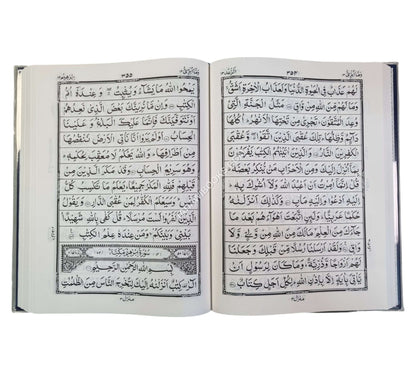 وَمَآ اُبَرِّئُ ١٣
٣٥٤
الرعد ١٣
لَهُمْ عَذَابٌ فِي الْحَيٰوةِ الدُّنْيَا وَلَعَذَابُ الْاٰخِرَةِ اَشَقُّ
وَمَا لَهُمْ مِّنَ اللّٰهِ مِنْ وَّاقٍ مَثَلُ الْجَنَّةِ الَّتِيْ
وُعِدَ الْمُتَّقُوْنَ تَجْرِيْ مِنْ تَحْتِهَا الْاَنْهٰرُ اُكُلُهَا دَآئِمٌ
وَّظِلُّهَا تِلْكَ عُقْبَى الَّذِيْنَ اتَّقَوْا وَّعُقْبَى
الْكٰفِرِيْنَ النَّارُ وَالَّذِيْنَ اٰتَيْنٰهُمُ الْكِتٰبَ يَفْرَحُوْنَ
بِمَآ اُنْزِلَ اِلَيْكَ وَمِنَ الْاَحْزَابِ مَنْ يُّنْكِرُ بَعْضَهٗ
قُلْ اِنَّمَآ اُمِرْتُ اَنْ اَعْبُدَ اللّٰهَ وَلَآ اُشْرِكَ بِهٖ اِلَيْهِ
اَدْعُوْا وَاِلَيْهِ مَاٰبِ وَكَذٰلِكَ اَنْزَلْنٰهُ
حُكْمًا عَرَبِيًّا وَلَئِنِ اتَّبَعْتَ اَهْوَآءَهُمْ بَعْدَ مَا
جَآءَكَ مِنَ الْعِلْمِ مَا لَكَ مِنَ اللّٰهِ مِنْ وَّلِيٍّ وَّلَا
وَاقٍ وَلَقَدْ اَرْسَلْنَا رُسُلًا مِّنْ قَبْلِكَ وَجَعَلْنَا
لَهُمْ اَزْوَاجًا وَّذُرِّيَّةً وَمَا كَانَ لِرَسُوْلٍ اَنْ
يَّاْتِيَ بِاٰيَةٍ اِلَّا بِاِذْنِ اللّٰهِ لِكُلِّ اَجَلٍ كِتَابٌ
منزل ٣
وَمَآ اُبَرِّئُ ١٣
٣٥٥
يَمْحُوا اللّٰهُ مَا يَشَآءُ وَيُثْبِتُ وَعِنْدَهٗٓ اُمُّ
الْكِتٰبِ وَاِنْ مَّا نُرِيَنَّكَ بَعْضَ الَّذِيْ نَعِدُهُمْ
اَوْ نَتَوَفَّيَنَّكَ فَاِنَّمَا عَلَيْكَ الْبَلٰغُ وَعَلَيْنَا
الْحِسَابُ اَوَلَمْ يَرَوْا اَنَّا نَاْتِي الْاَرْضَ نَنْقُصُهَا
مِنْ اَطْرَافِهَا وَاللّٰهُ يَحْكُمُ لَا مُعَقِّبَ لِحُكْمِهٖ
وَهُوَ سَرِيْعُ الْحِسَابِ وَقَدْ مَكَرَ الَّذِيْنَ مِنْ
قَبْلِهِمْ فَلِلّٰهِ الْمَكْرُ جَمِيْعًا يَعْلَمُ مَا تَكْسِبُ كُلُّ
نَفْسٍ وَسَيَعْلَمُ الْكُفّٰرُ لِمَنْ عُقْبَى الدَّارِ وَيَقُوْلُ
الَّذِيْنَ كَفَرُوْا لَسْتَ مُرْسَلًا قُلْ كَفٰى بِاللّٰهِ شَهِيْدًا
بَيْنِيْ وَبَيْنَكُمْ وَمَنْ عِنْدَهٗ عِلْمُ الْكِتٰبِ
سورة ابرهيم مكية
بِسْمِ اللّٰهِ الرَّحْمٰنِ الرَّحِيْمِ
الٓرٰ كِتٰبٌ اَنْزَلْنٰهُ اِلَيْكَ لِتُخْرِجَ النَّاسَ مِنَ الظُّلُمٰتِ
منزل ٣